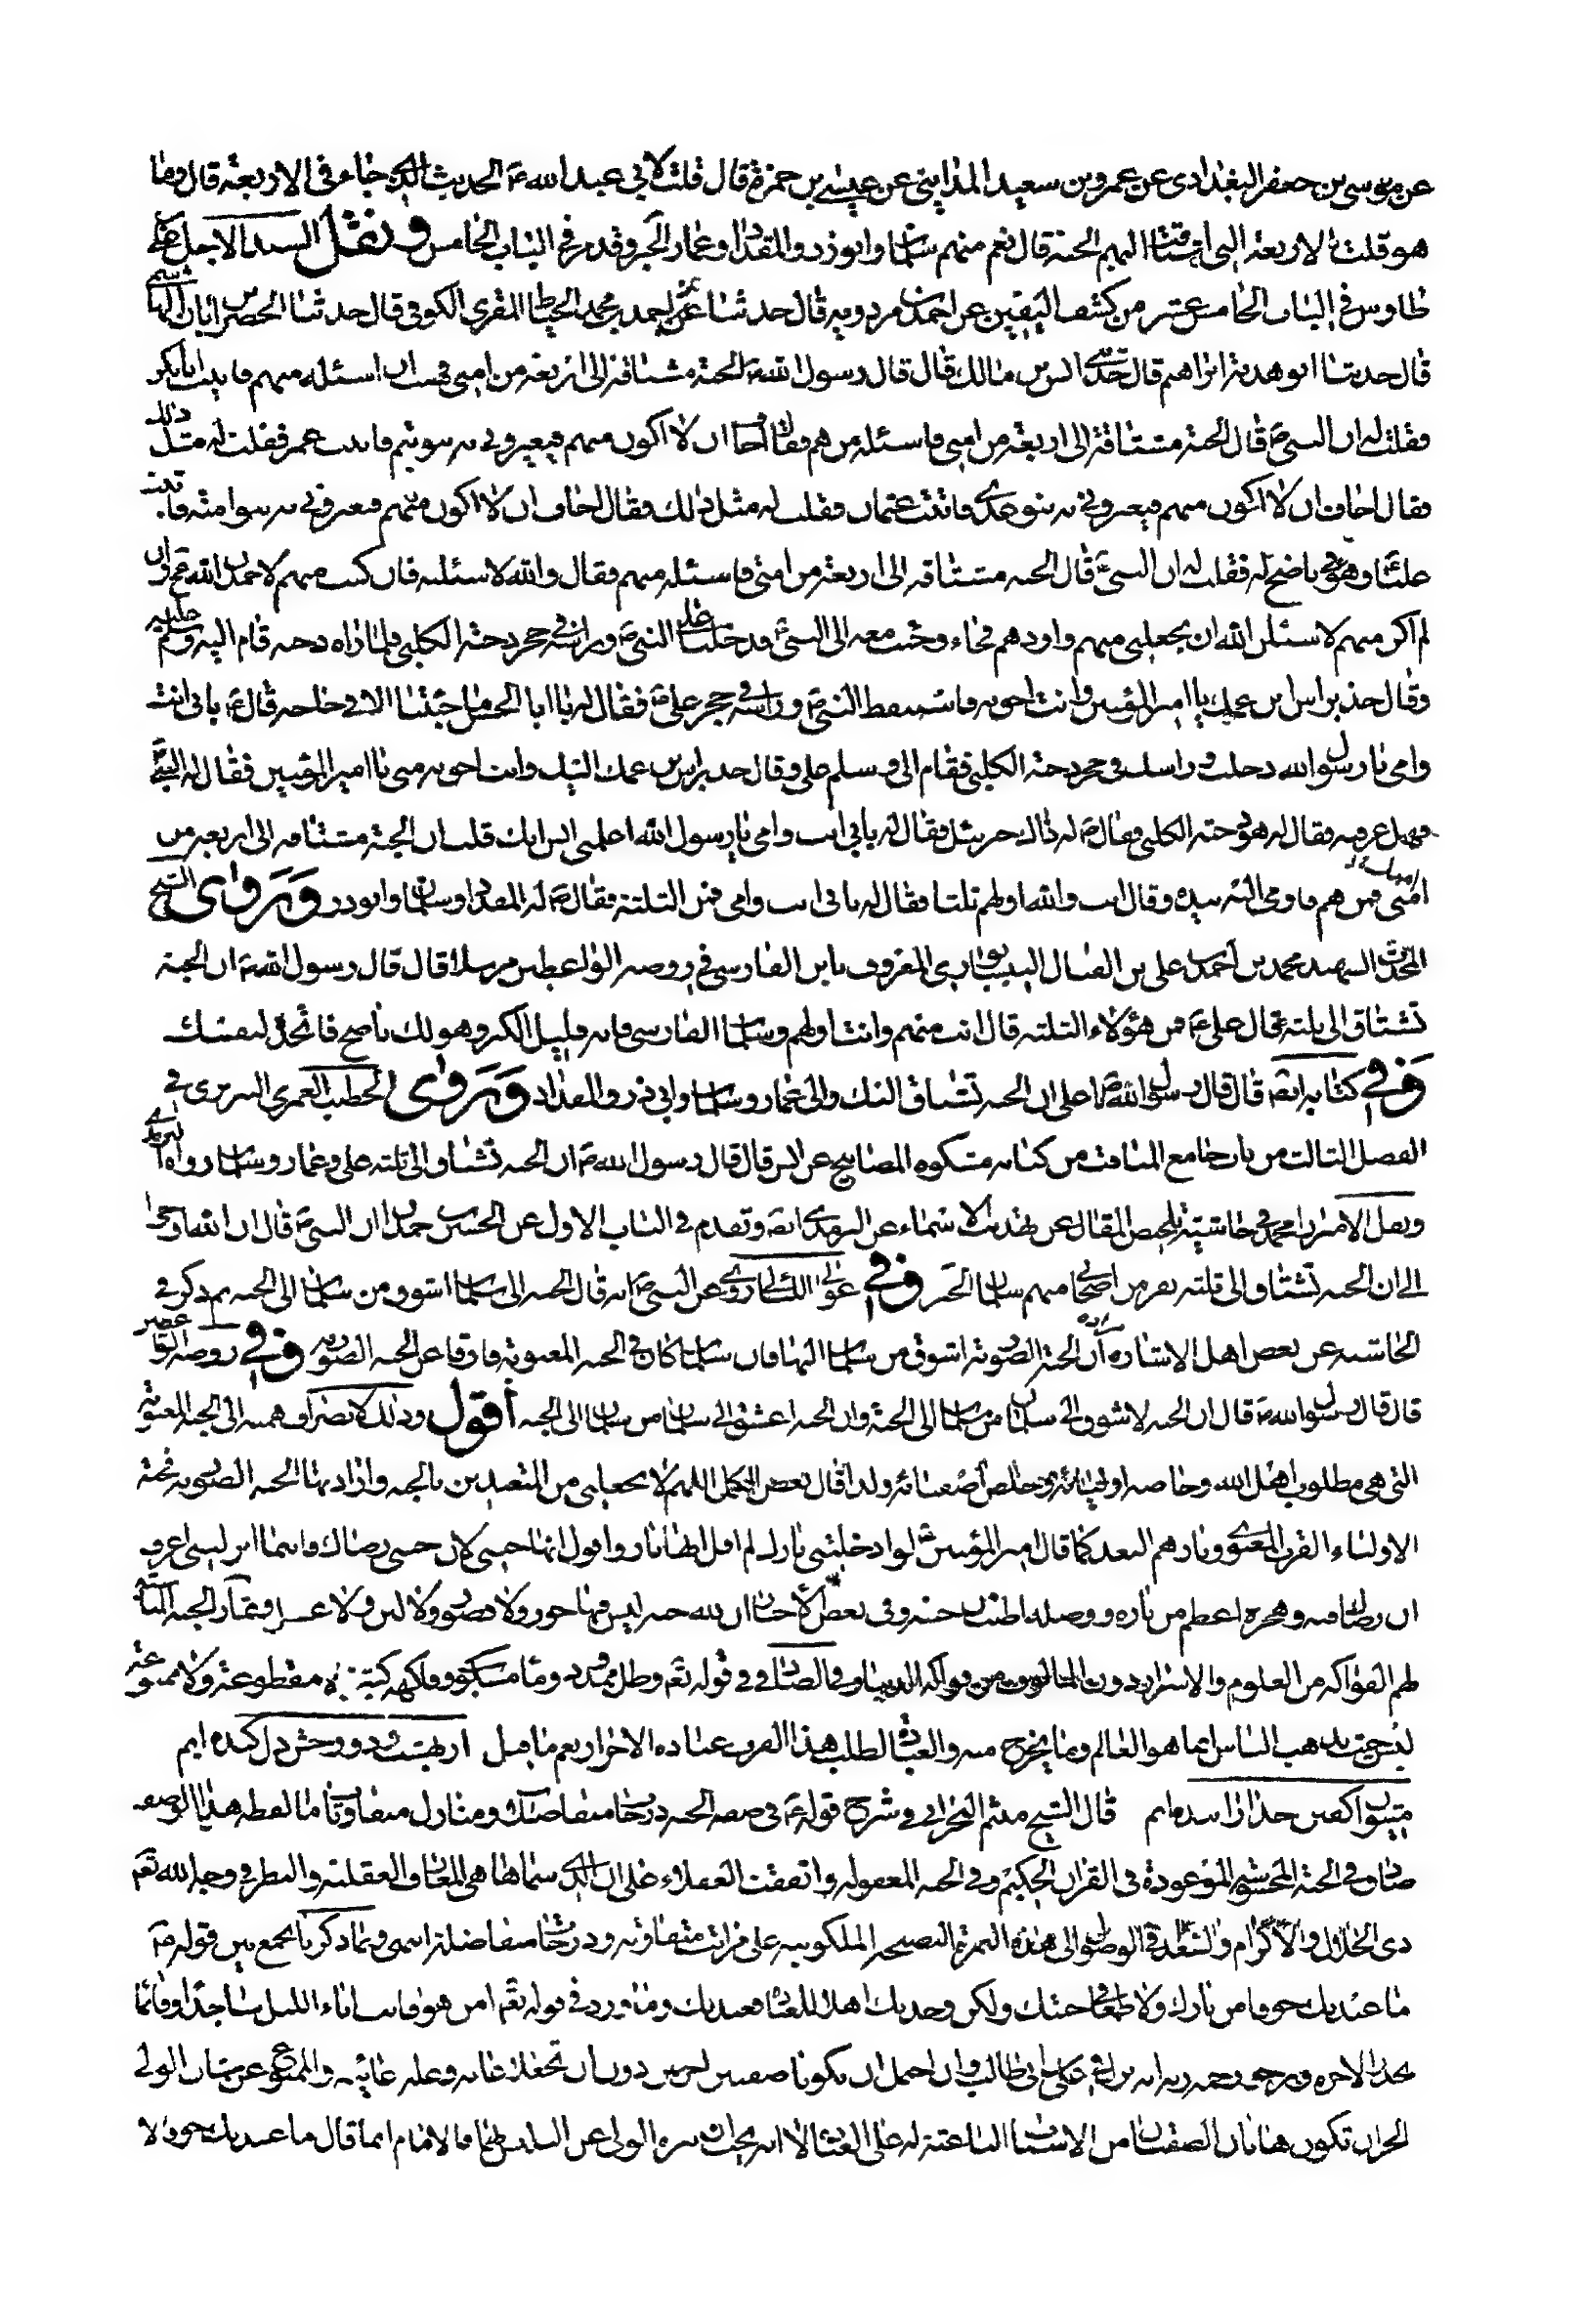 عن موسى بن جعفر البغدادى عن عمرو بن سعيد المداينى عن عيسى بن حمزة قال قلت لابي عبد الله ع الحديث الذى جاء فى الاربعة قال وما
هو قلت الاربعة التى اشتاقت اليهم الجنة قال نعم منهم سلمان وابوذر والمقداد وعمار الخبر وقد مر فى الباب الخامس ونقل السيد الاجل على
طاوس فى الباب الخامس عشر من كشف اليقين عن احمد بن مردويه قال حدثنا احمد بن محمد الخياط المقرى الكوفى قال حدثنا الخضر بن ابان الهاشمى
قال حدثنا ابو هدبة ابراهيم قال حدثنى انس بن مالك قال قال رسول الله ص الجنة مشتاقة الى اربعة من امتى فهبت ان اسئله منهم فاتيت ابابكر
فقلت له ان النبى ص قال الجنة مشتاقة الى اربعة من امتى فاسئله من هم فقال اخاف ان لا اكون منهم فيعيرونى به بنو تيم فاتيت عمر فقلت له مثل ذلك
فقال اخاف ان لا اكون منهم فيعيرونى به بنو عدى فاتيت عثمان فقلت له مثل ذلك فقال اخاف ان لا اكون منهم فيعيرونى به بنو امية فاتيت
عليا وهو فى ناضح له فقلت له ان النبى ص قال الجنة مشتاقة الى اربعة من امتى فاسئله منهم فقال والله لاسئلنه فان كنت منهم لاحمدن الله عز وجل وان
لم اكن منهم لاسئلن الله ان يجعلنى منهم واودهم فجاء وجئت معه الى النبى ص فدخلنا على النبى ص وراسه فى حجر دحية الكلبى فلما راه دحيه قام اليه وسلم عليه
وقال خذ براس ابن عمك يا امير المؤمنين وانت احق به فاستيقظ النبى ص وراسه فى حجر على ع فقال له يا ابا الحسن ما جئتنا الا فى حاجه قال ع بابى انت
وامى يا رسول الله دخلت وراسك فى حجر دحية الكلبى فقام الى وسلم على وقال خذ براس ابن عمك اليك وانت احق به منى يا امير المؤمنين فقال له النبى ص
فهل عرفته فقال له هو دحية الكلبى فقال ص له ذاك جبرئيل فقال له بابى انت وامى يا رسول الله اعلمنى انس انك قلت ان الجنة مشتاقه الى اربعه من
امتى فمن هم فاومى اليه بيده وقال انت والله اولهم ثلثا فقال له بابى انت وامى فمن الثلثة فقال ص له المقداد وسلمان وابوذر وروى الشيخ
المحدث الشهيد محمد بن احمد بن على بن الفتال النيسابورى المعروف بابن الفارسى فى روضة الواعظين مرسلا قال قال رسول الله ص ان الجنة
تشتاق الى ثلثه قال على ع فمن هؤلاء الثلثه قال انت منهم وانت اولهم وسلمان الفارسى فانه قليل الكبر وهو لك ناصح فاتخذه لنفسك
وفى كتابه ايضا قال قال رسول الله ص يا على ان الجنه تشتاق اليك والى عمار وسلمان وابى ذر والمقداد وروى الخطيب العمرى التبريزى فى
الفصل الثالث من باب جامع المناقب من كتابه مشكوة المصابيح عن انس قال قال رسول الله ص ان الجنه تشتاق الى ثلثه على وعمار وسلمان رواه الترمذى
ونقل الاميرزا محمد فى حاشية تلخيص المقال عن تهذيب الاسماء عن الترمذى ايضا وتقدم فى الباب الاول عن الحسين بن حمدان ان النبى ص قال ان الله اوحى
الى ان الجنه تشتاق الى ثلثه نفر من اصحابى منهم سلمان الخبر وفى عوالى اللئالى روى عن النبى ص انه قال الجنه الى سلمان اشوق من سلمان الى الجنه ثم ذكر فى
الحاشيه عن بعض اهل الاشاره ان الجنة الصورية اشوق من سلمان اليها فان سلمان كان فى الجنه المعنوية فارقا عن الجنه الصوريه وفى روضة الواعظين
قال قال رسول الله ص قال ان الجنه لاشوق الى سلمان من سلمان الى الجنة وان الجنه اعشق الى سلمان من سلمان الى الجنه أقول وذلك لانصراف همته الى الجنة المعنوية
التى هى مطلوب اهل الله وخاصه اوليائه وخلص اصفيائه ولذا قال بعض الكمل اللهم لا تجعلنى من المتعبدين بالجنه واراد بها الجنه الصورية فجنة
الاولياء القرب المعنوى ونارهم البعد كما قال امير المؤمنين ع لو ادخلتنى نارك لم اقل انها نار واقول انها جنتى لان جنتى رضاك فاينما انزلتنى اعرف
ان رضاك فيه وهجره اعظم من ناره ووصله اطيب من جنته وفى بعض الاخبار ان لله جنه ليس فيها حور ولا قصور ولا لبن ولا عسل وثمار الجنه التى
لهم الفواكه من العلوم والاسرار دون المالوف من فواكه الدنيا وفى الصافى فى قوله تعم وظل ممدود وماء مسكوب وفاكهة كثيرة لا مقطوعة ولا ممنوعة
ليس حيث يذهب الناس انما هو العالم وما يخرج منه والعبادة لطلب هذا القرب عبادة الاحرار ونعم ما قيل از بهشت و دوزخش دل كنده ايم
قال الشيخ ميثم البحرانى فى شرح قوله ع فى صفه الجنه درجات متفاضلات ومنازل متفاوتات ما لفظه هذا الوصف
صادق فى الجنة المحسوسة الموعودة فى القران الحكيم وفى الجنه المعقوله واتفقت العقلاء على ان الذ ثمارها هى المعارف العقلية والنظر فى وجه الله تعم
ذى الجلال والاكرام والسعداء فى الوصول الى هذه الثمرة النضيجه الملكوتيه على مراتب متفاوته ودرجات متفاضلة انتهى وبما ذكرنا يجمع بين قوله ص
ما عبدتك خوفا من نارك ولا طمعا فى جنتك ولكن وجدتك اهلا للعبادة فعبدتك وما ورد فى قوله تعم امن هو قانت اناء الليل ساجدا وقائما
يحذر الاخرة ويرجو رحمه ربه انه نزل فى على بن ابى طالب وان احتمل ان يكونا صفتين له من دون ان تجعلا غايه وعله غائيه والممنوع من شان الولى
الحر ان تكون هاتان الصفتان من الاسباب الباعثة له على العبادة لا انه يجب ان ينزه الولى عن التلبس بهما فالامام انما قال ما عبدتك خوفا ولا